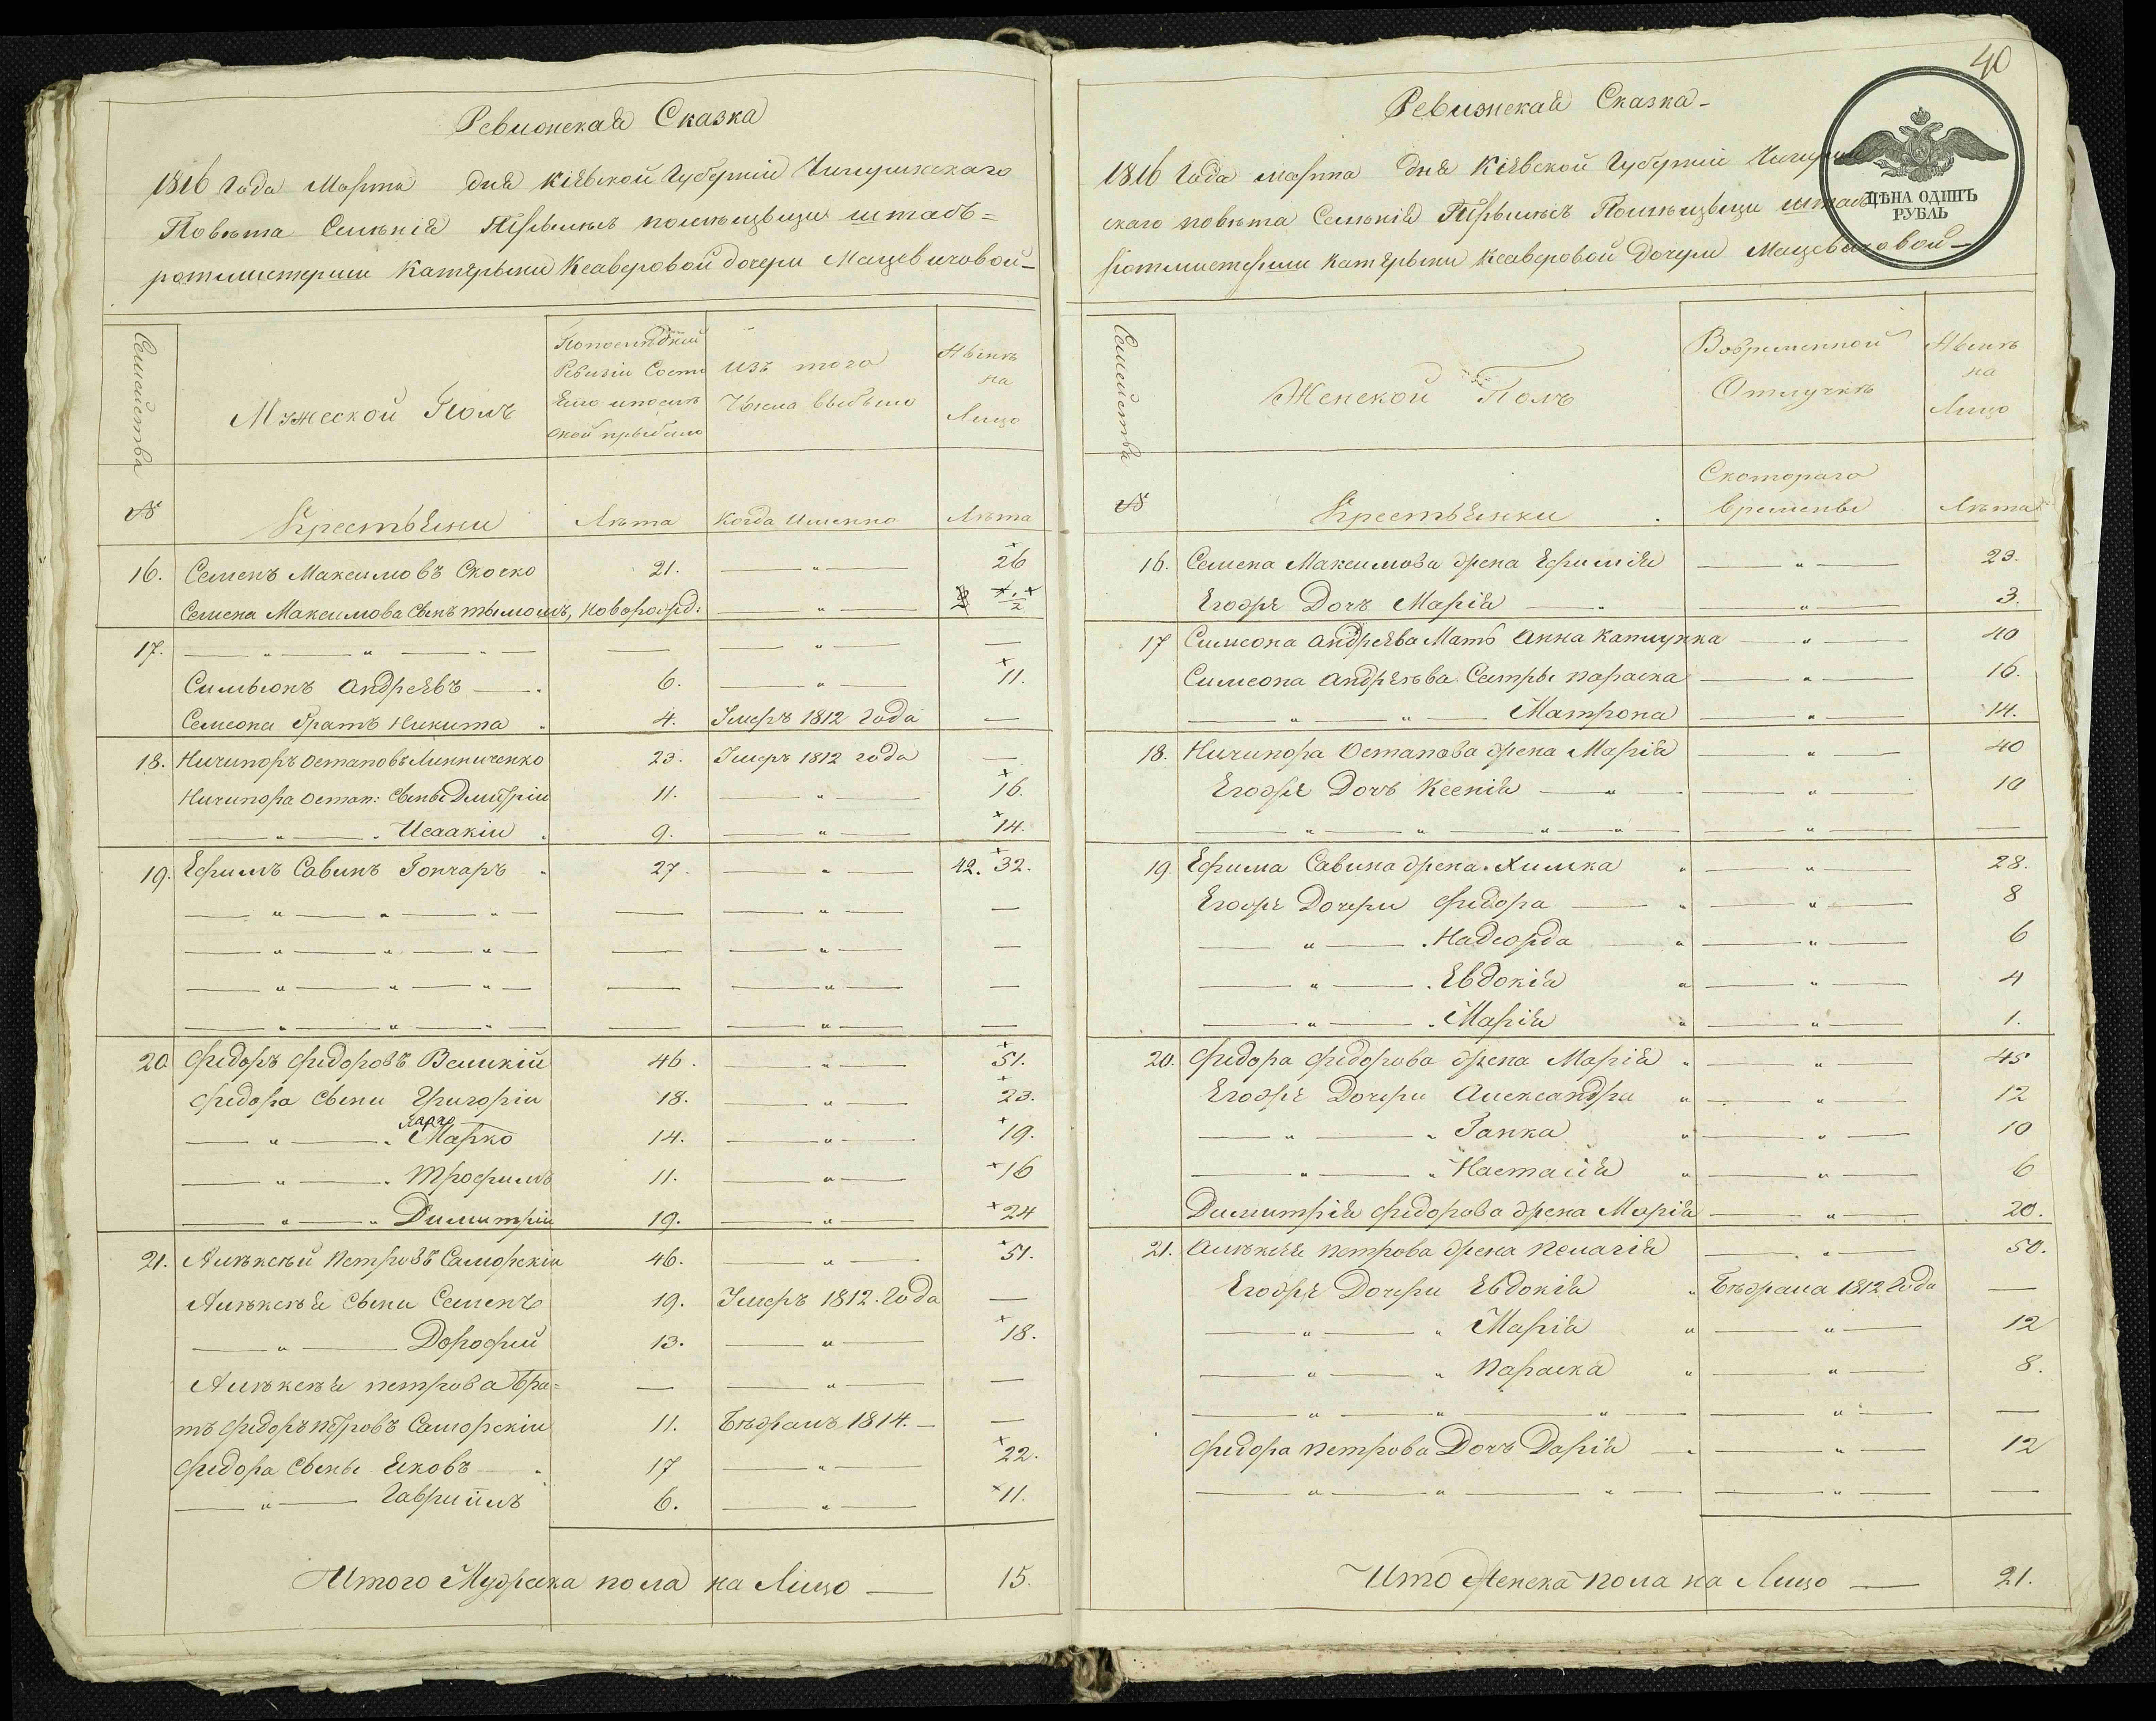 Ревизнская Сказка
1816 года Марта дня Кіевской Губерніи Чигиринскаго
Повѣта Селѣнія помѣщыци штабъ=
ротмистерши Катѣрыни Ксаверовой дочери Мацевичовой—
Семейства
Мужеской Полъ
Попослѣдней
Ревизіи Состо
Яло ипослѣ
оной прыбыло
изъ того
Числа выбыло
Нынѣ
на
Лицо
№
Крестьяни
Лѣта
Когда Именно
Лѣта
16. Семенъ Максимовъ Скочко 21. — „ — 26
Семена Максимова сынъ тымошъ, новорожд: — „ — 1/2
17. — „ — „ — „ — — — „ — —
Симѣонъ Андреявъ — 6. — „ — 11.
Семеона братъ Никита 4. Умеръ 1812 года —
18. Ничипоръ Остаповъ Линниченко 23. Умеръ 1812 года —
Ничипора Остап: Сыны Дмитріи 11. — „ — 16.
— „ — Исаакіи 9. — „ — 14.
19. Ефимъ Савинъ Гончаръ 27. — „ — 42. 32.
— „ — „ — „ — — — „ — —
— „ — „ — „ — — — „ — —
— „ — „ — „ — — — „ — —
— „ — „ — „ — — — „ — —
20 Федоръ Федоровъ Великій 46. — „ — 51.
Федора Сыни Григоріи 18. — „ — 23.
— „ — Марко 14. — „ — 19.
— „ — Трофимъ 11. — „ — 16
— „ — Димитріи 19. — „ — 24
21. Алѣксѣй Петровъ Саморскіи 46. — „ — 51.
Алѣксѣя Сыни Семенъ 19. Умеръ 1812. года —
— „ — Дорофѣй 13. — „ — 18.
Алѣксѣя петрова бра= — — „ — —
тъ Федоръ Петровъ Саморскіи 11. Бѣжалъ 1814. — —
Федора Сыны Яковъ — 17 — „ — 22.
— „ — Гавриилъ 6. — „ — 11.
Итого Мужска пола на Лицо — 15.
40
Ревизнская Сказка—
ЦѢНА ОДИНЪ
РУБЛЬ
1816 года марта дня Кіевской Губерніи Чигирин
скаго повѣта Селѣнія Помѣщыци штабъ
ротмистерши Катѣрыни Ксаверовой Дочери Мацевичовой—
Семейства
Женской Полъ
Вовременной
Отлучкѣ
Нынѣ
на
Лицо
№
Крестьянки
Скотораго
времены
Лѣта
16. Семена Максимова жена Ефимія — „ — 23.
Егожъ Дочъ Марія — „ — 3.
17 Симеона Андреява Матъ Анна — „ — 40
Симеона Андреѣва Сестры параска — „ — 16.
— „ — „ — Матрона — „ — 14.
18. Ничипора Остапова жена Марія — „ — 40
Егожя Дочъ Ксенія — „ — 10
— „ — „ — „ — „ — — „ — —
19. Ефима Савина жена Химка — „ — 28.
Егожя Дочери Федора — „ — 8
— „ — Надежда — „ — 6
— „ — Евдокія — „ — 4
— „ — Марія — „ — 1.
20. Федора Федорова жена Марія — „ — 45
Егожя Дочери Александра — „ — 12
— „ — Ганка — „ — 10
— „ — Настасія — „ — 6
Димитрія Федорова жена Марія — „ — 20.
21. Алѣксѣя петрова жена Пелагія — „ — 50.
Егожя Дочери Евдокія Бѣжала 1812 года —
— „ — Марія — „ — 12
— „ — Параска — „ — 8.
— „ — „ — „ — — „ — —
Федора петрова Дочъ Дарія — „ — 12
— „ — „ — „ — — „ — —
Итого Женска пола на Лицо — 21.